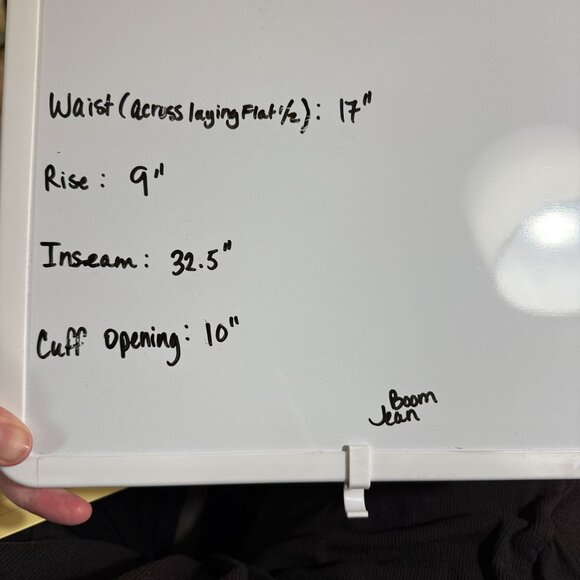 Waist (across laying Flat 1/2): 17"
Rise: 9"
Inseam: 32.5"
Cuff Opening: 10"
Boom
Jean